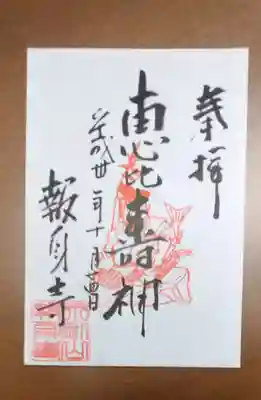 奉拝
恵比寿神
平成卅年十月廿四日
報身寺